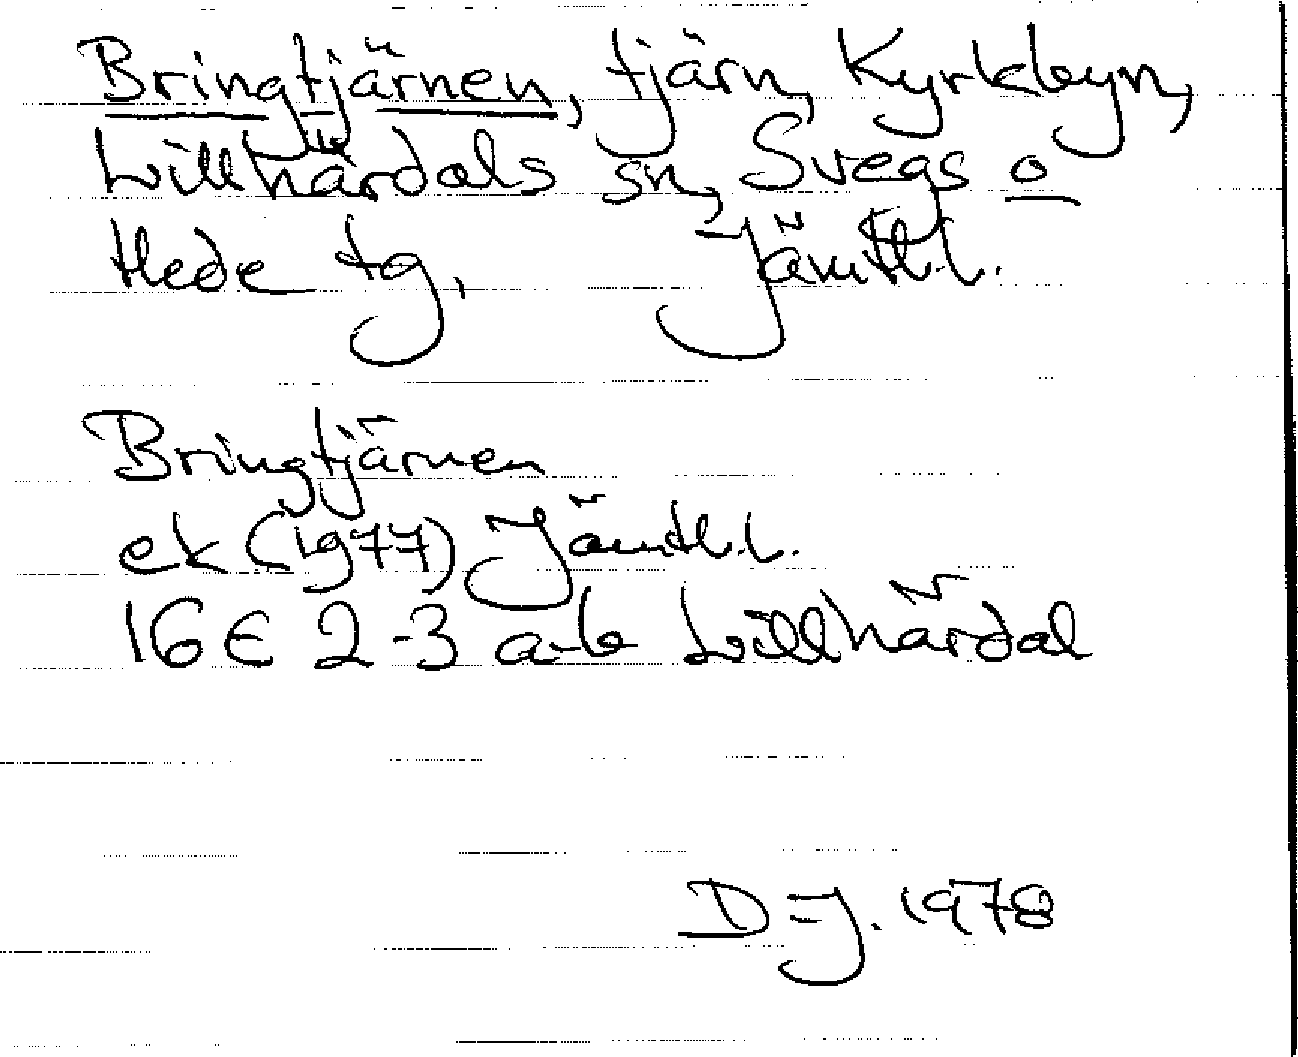 Bringtjärnen, tjärn, Kyrkbyn,
Lillhärdals sn, Svegs o
Hede tg, Jämtl.l.
Bringtjärnen
ek (1977) Jämtl.l.
16E 2-3 a-b Lillhärdal
D=J. 1978